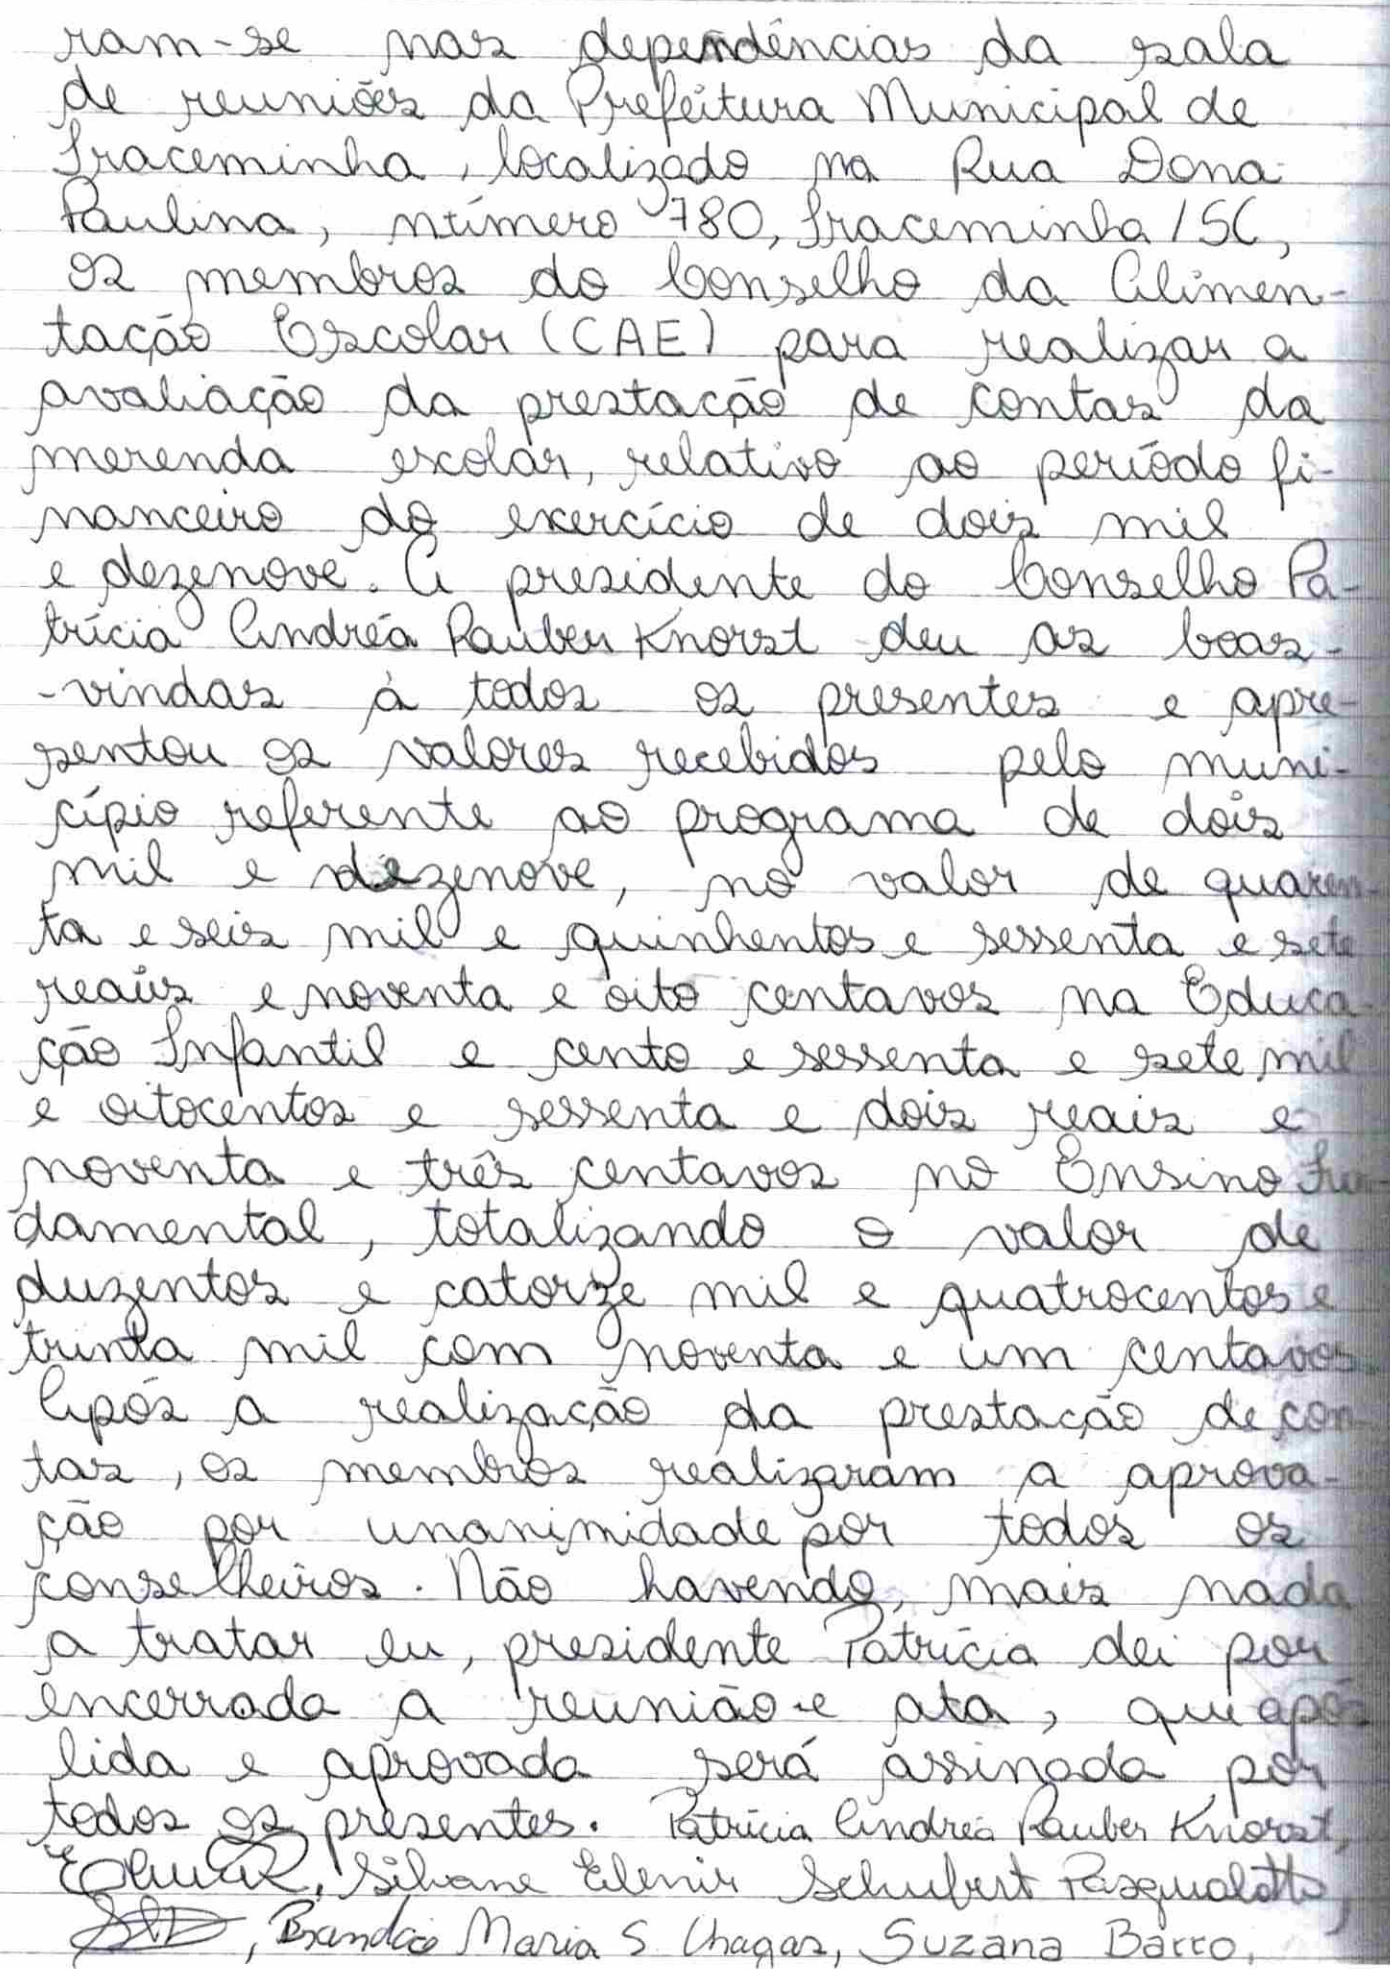 ram-se nas dependências da sala
de reuniões da Prefeitura Municipal de
Iraceminha, localizado na Rua Dona
Paulina, número 780, Iraceminha/SC,
os membros do Conselho da Alimen-
tação Escolar (CAE) para realizar a
avaliação da prestacão de contas da
merenda escolar, relativo ao período fi-
nanceiro do exercício de dois mil
e dezenove. A presidente do Conselho Pa-
trícia Andréa Rauber Knorst deu as boas-
-vindas à todos os presentes e apre-
sentou os valores recebidos pelo muni-
cípio referente ao programa de dois
mil e dezenove, no valor de quaren-
ta e seis mil e quinhentos e sessenta e sete
reais e noventa e oito centavos na Educa-
ção Infantil e cento e sessenta e sete mil
e oitocentos e sessenta e dois reais e
noventa e três centavos no Ensino Fun-
damental, totalizando o valor de
duzentos e catorze mil e quatrocentos e
trinta mil com noventa e um centavos.
Após a realização da prestacão de con-
tas, os membros realizaram a aprova-
ção por unanimidade por todos os
conselheiros. Não havendo, mais nada
a tratar eu, presidente Patrícia dei por
encerrada a reunião e ata, que após
lida e aprovada será assinada por
todos os presentes. Patrícia Andréa Rauber Knorst,
Silvane Elenir Schubert Pasqualotto,
Maria S. Chagas, Suzana Barro,